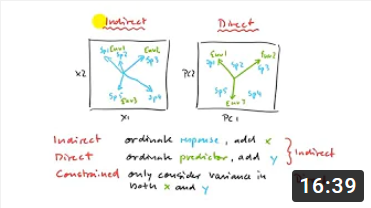 Indirect Direct
Env1 Env2
Sp1 Sp2 Sp3
Sp5 Env3 Sp4
x2
x1
Env1 Env2
Sp1 Sp2 Sp3
Sp5 Sp4
Env3
PC2
PC1
Indirect ordinate response, add x
Direct ordinate predictor, add y } Indirect
Constrained only consider variance in
both x and y
16:39